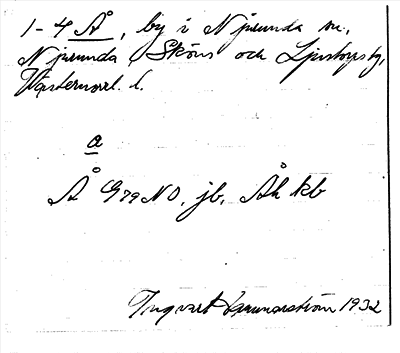 1-4 Å, by i Njurunda sn,
Njurunda, Sköns och Ljustorps tg,
Västernorrl. l.
a
Å G79NO, jb, Åh kb
Ingvart Hammarström 1932